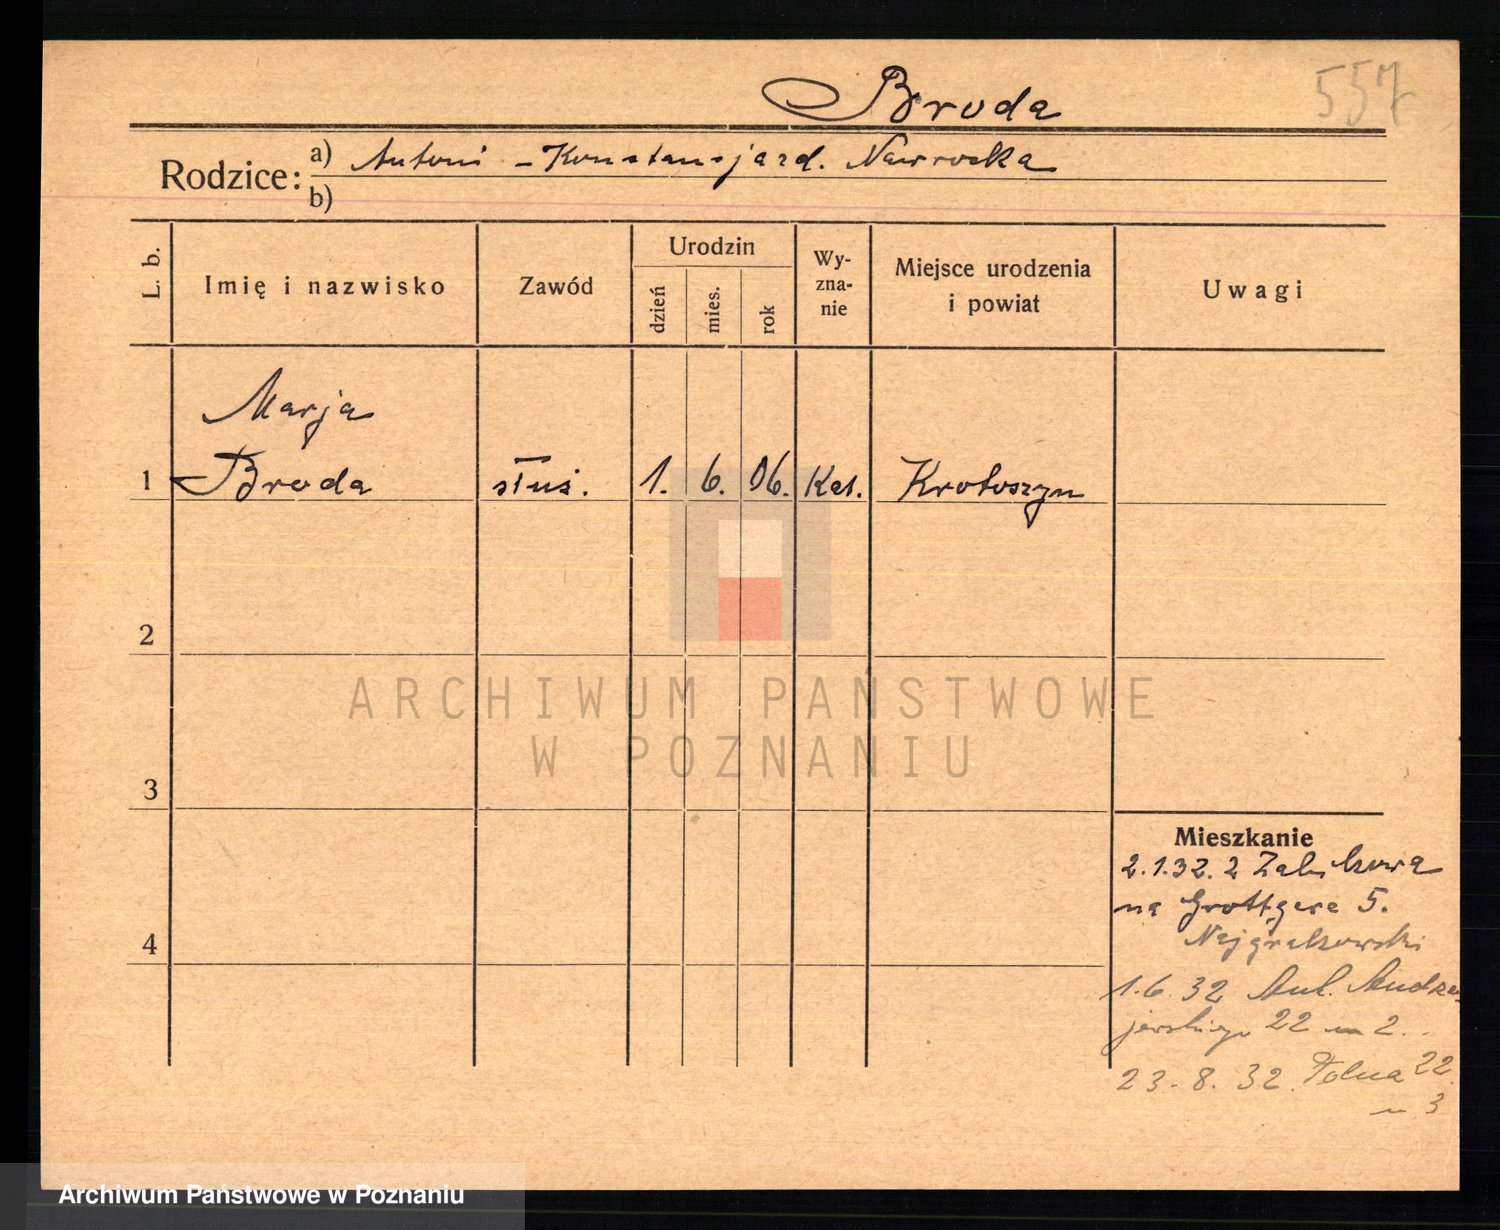 Broda
557
Rodzice: a) Antoni - Konstancja zd. Nawrocka
b)
L. b. Imię i nazwisko Zawód Urodzin dzień mies. rok Wyznanie Miejsce urodzenia i powiat Uwagi
Marja
1 Broda służ. 1. 6. 06. Kat. Krotoszyn
2
ARCHIWUM PAŃSTWOWE
W POZNANIU
3
Mieszkanie
2.1.32. z Zabikowa
na Grottgera 5.
4
Najgrakowski
1.6.32 Andrze-
jewskiego 22 m 2.
23.8.32. Polna 22
m 3
Archiwum Państwowe w Poznaniu